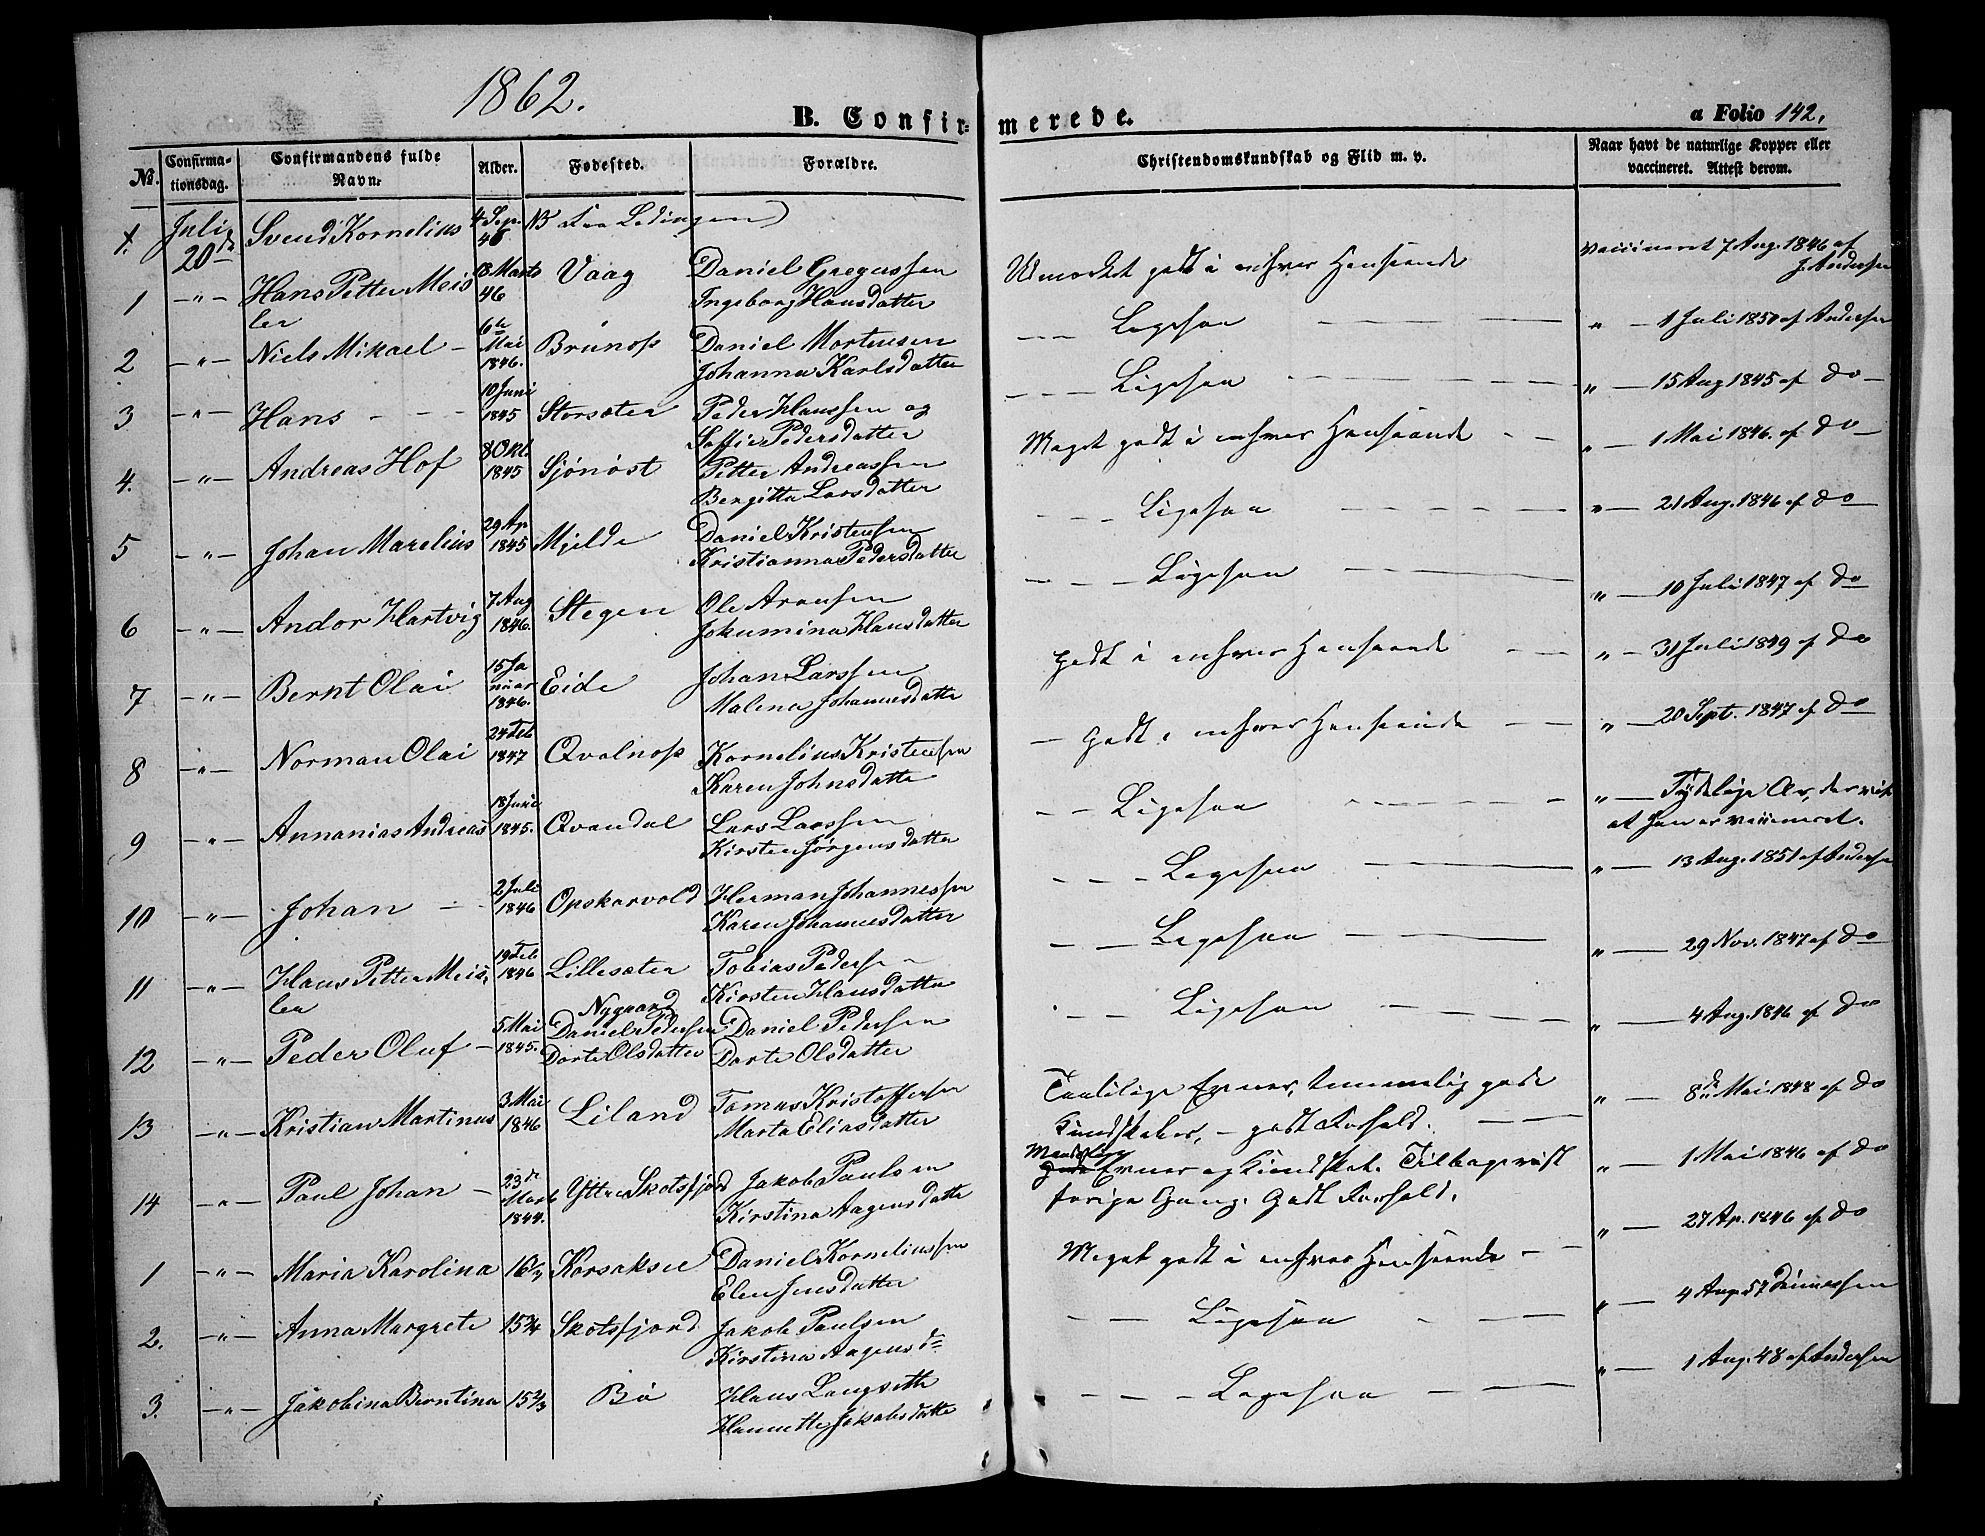 1862.
B. Confir-
merede.
a Folio 142.
No.
Confirma-
tionsdag.
Confirmandens fulde
Navn.
Alder.
Fødested.
Forældre.
Christendomskundskab og Flid m. v.
Naar havt de naturlige Kopper eller
vaccineret. Attest derom.
1. Juli 20de Svend Kornelius 4 Sep. 45 NB
1 -"- Hans Petter Meis 18 Marts 46 Vaag Daniel Gregussen
ler Ingeborg Hansdatter
Udmærket godt i enhver Henseende
vaccineret 7 Aug. 1846 af
J. Andersen
2 -"- Niels Mikael - 6te Mai 1846. Brunøss Daniel Mortensen
Johanna Karlsdatter
Ligesaa " - 1 Juli 1850 af Andersen
3 -"- Hans - - - 10 Juni 1845 Storsæter Peder Hanssen og
Soffie Pedersdatter
Ligesaa " - 15 Aug 1845 af do
4. -"- Andreas Hof 8 Okt. 1845 Sjønøst Petter Andreassen
Bergitta Larsdatter
Meget godt i enhver Henseende " - 1 Mai 1846. af do
5 -"- Johan Marelius 29 Ap 1845 Mjelde Daniel Kristensen
Kristianna Pedersdatter
Ligesaa " - 21 Aug. 1846 af do
6 -"- Andor Hartvig 7 Aug 1846. Stegen Ole Aronsen
Jokumina Hansdatter
Ligesaa " - 10 Juli 1847 af do
7 -"- Bernt Olai 15 Januar 1846. Eide Johan Larssen
Malena Johannesdatte
godt i enhver Henseende " - 31 Juli 1849 af do
8 -"- Norman Olai 24 Feb 1847 Qvalnøss Kornelius Kristensen
Karen Johnsdatte
godt i enhver Henseende " - 20 Sept. 1847 af do
9 -"- Annanias Andreas 18 Juni 1845. Qvandal Lars Larssen
Kirsten Jørgensdatter
Ligesaa " - Tydelige Ar, der vise
at han er vaccineret.
10 -"- Johan - - 2 Juli 1846 Opskarvold Herman Johannessen
Karen Johannesdatter
Ligesaa " - 13 Aug. 1851 af Andersen
11 -"- Hans Petter Meis 19 Feb 1846 Lillesæter Tobias Pedersen
ler Kirsten Hansdatter
Ligesaa " - 29 Nov. 1847 af do
12 -"- Peder Oluf - 5 Mai 1845. Nygaard Daniel Pedersen
Daniel Pedersen
Dorte Olsdatter Dorte Olsdatter
Ligesaa " - 4 Aug. 1846 af do
13 -"- Kristian Martinus 3 Mai 1846 Liland Tomas Kristoffersen
Marta Eliasdatter
Taalelige Evner, temmelig gode
Kundskaber, - godt Forhold.
" - 8de Mai 1848 af do
14 -"- Paul Johan - 23de Marts 1844. Yttre Skotsfjord Jakob Paulsen
Kirstina Aagensdatte
Evner og Kundskab. Tilbagevist
forrige Gang. Godt Forhold.
" - 1 Mai 1846 af do
1 -"- Maria Karolina 16 1/2 Korsaksel Daniel Korneliussen
Elen Jensdatter
Meget godt i enhver Henseende " - 27 Ap. 1846 af do
2. -"- Anna Margrete 15 3/4 Skotsfjord Jakob Paulsen
Kirstina Aagensd=
Ligesaa " - 4 Aug 57
3. -"- Jakobina Berntina 15 2/3 Bø Hans Langseth
Hannette Jakobsdatte
Ligesaa " - 1 Aug. 48 af Andersen